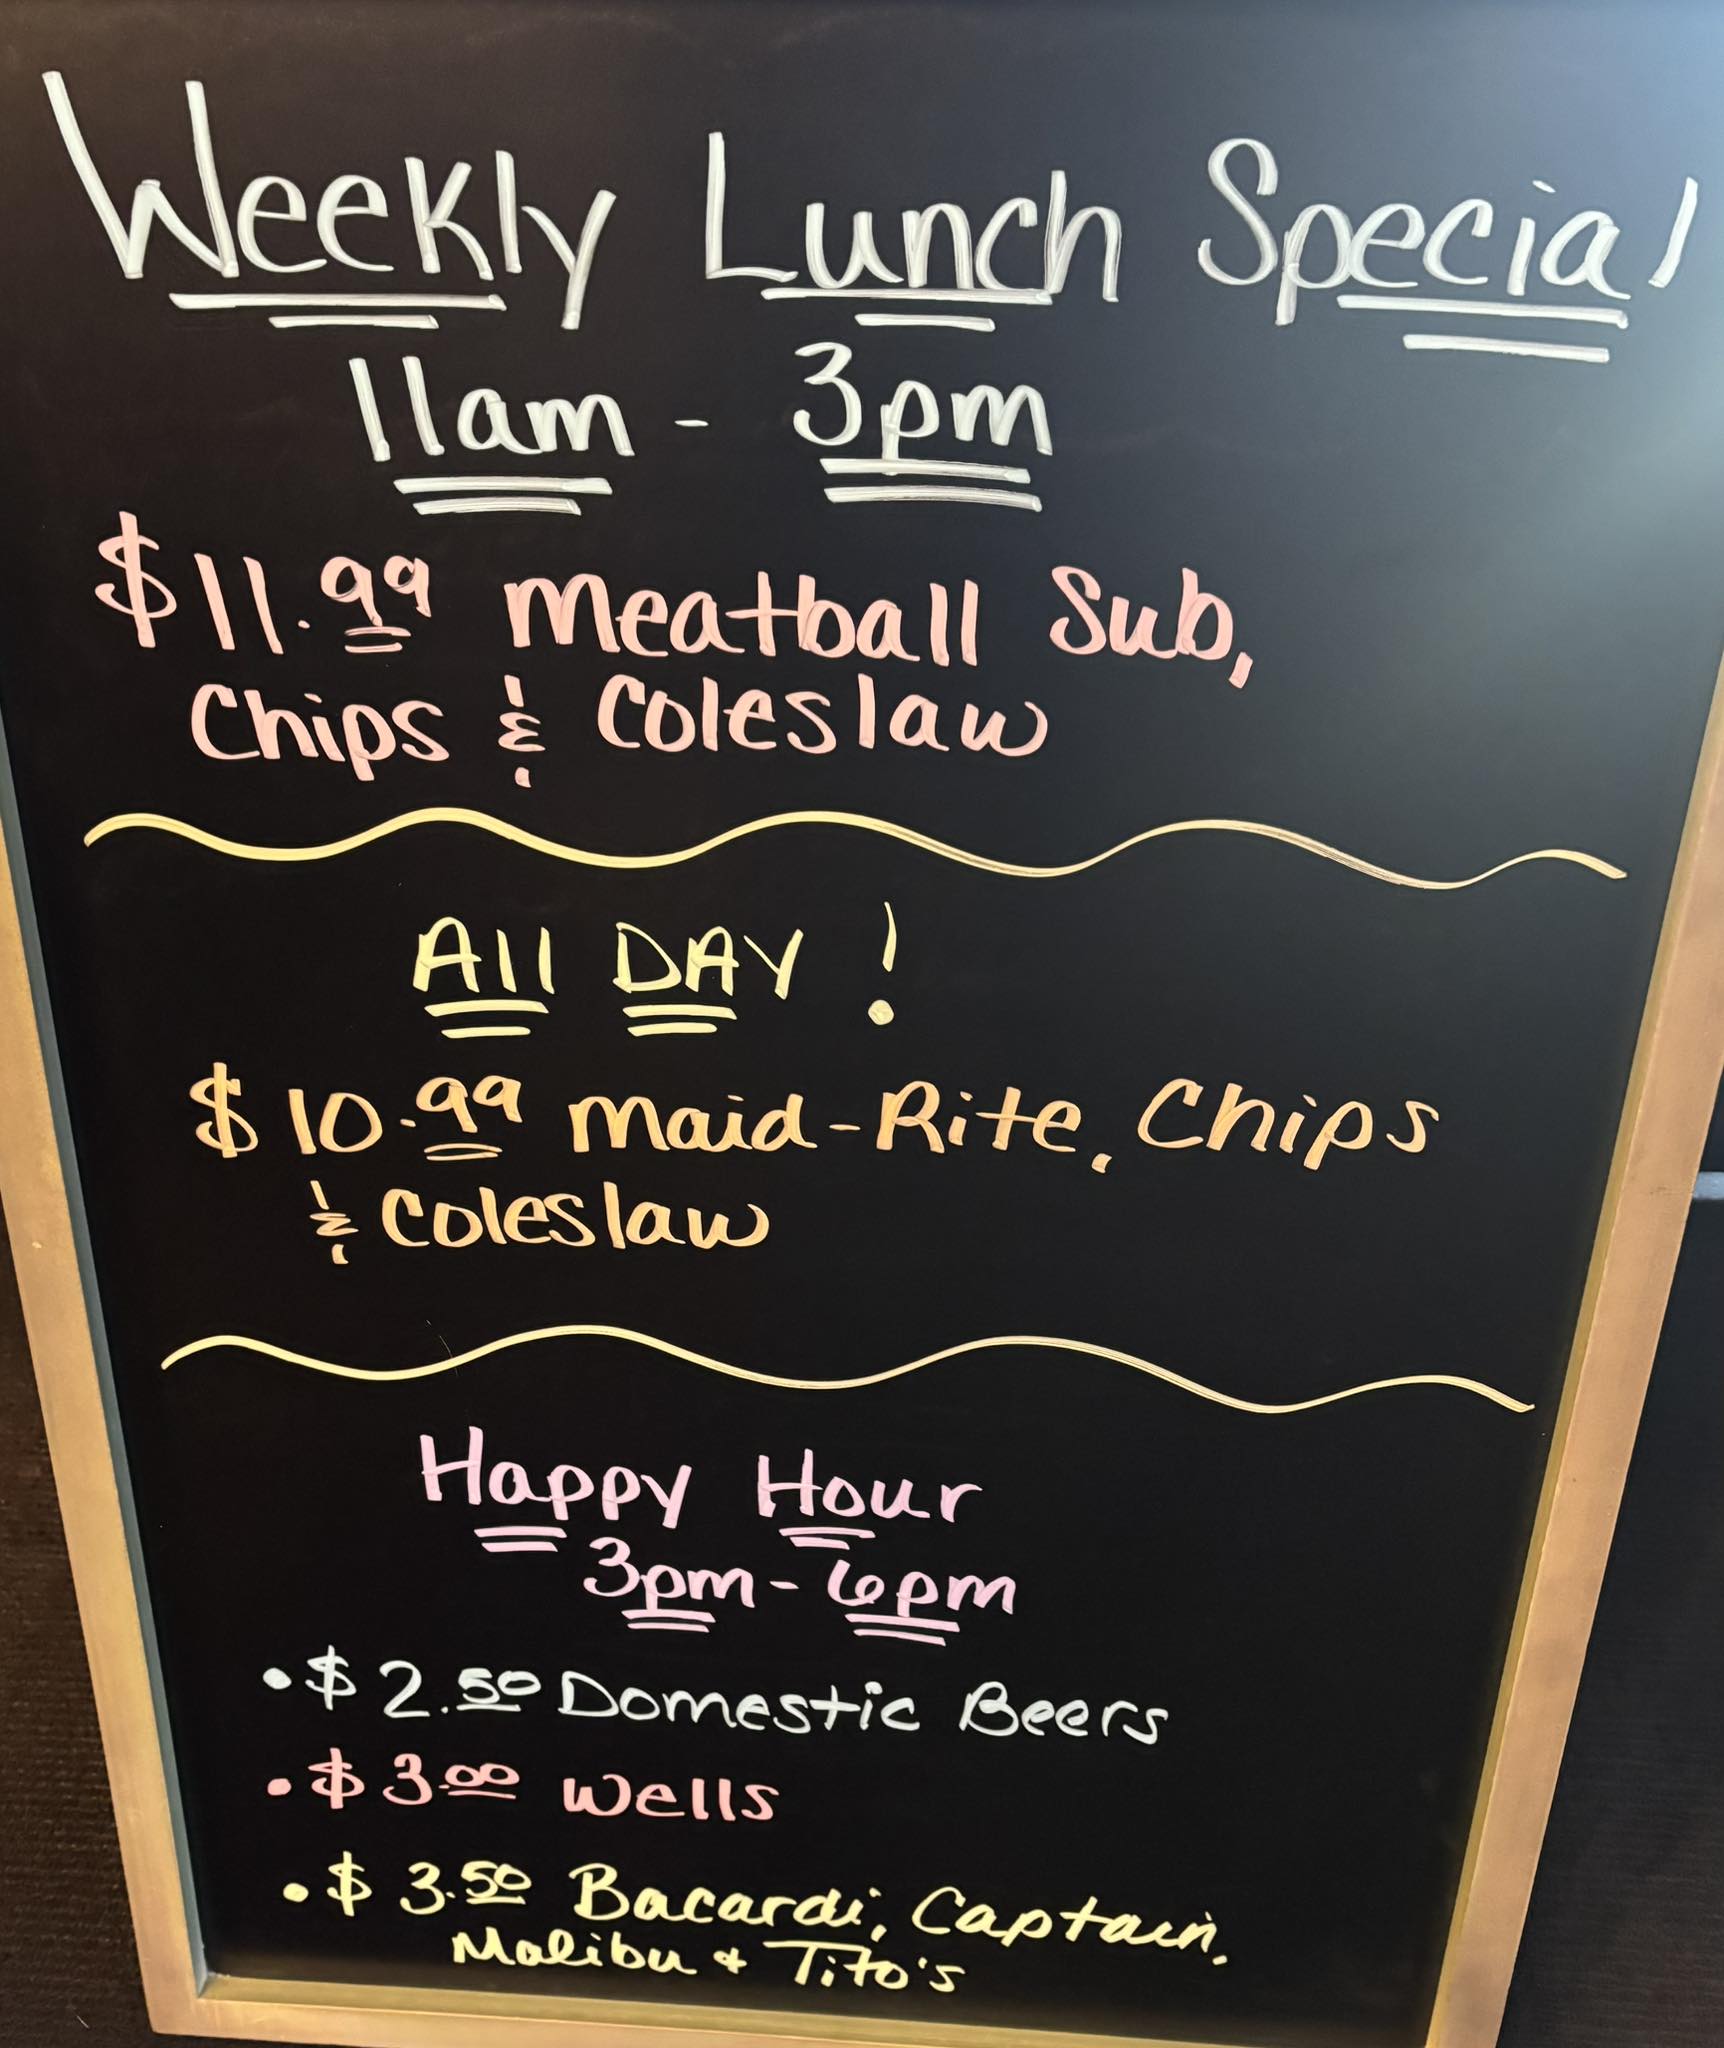 Weekly Lunch Special
11am - 3pm
$11.99 Meatball Sub,
Chips & Coleslaw
All DAY!
$10.99 Maid-Rite, Chips
& Coleslaw
Happy Hour
3pm - 6pm
• $2.50 Domestic Beers
• $3.00 Wells
• $3.50 Bacardi, Captain,
Malibu & Tito's